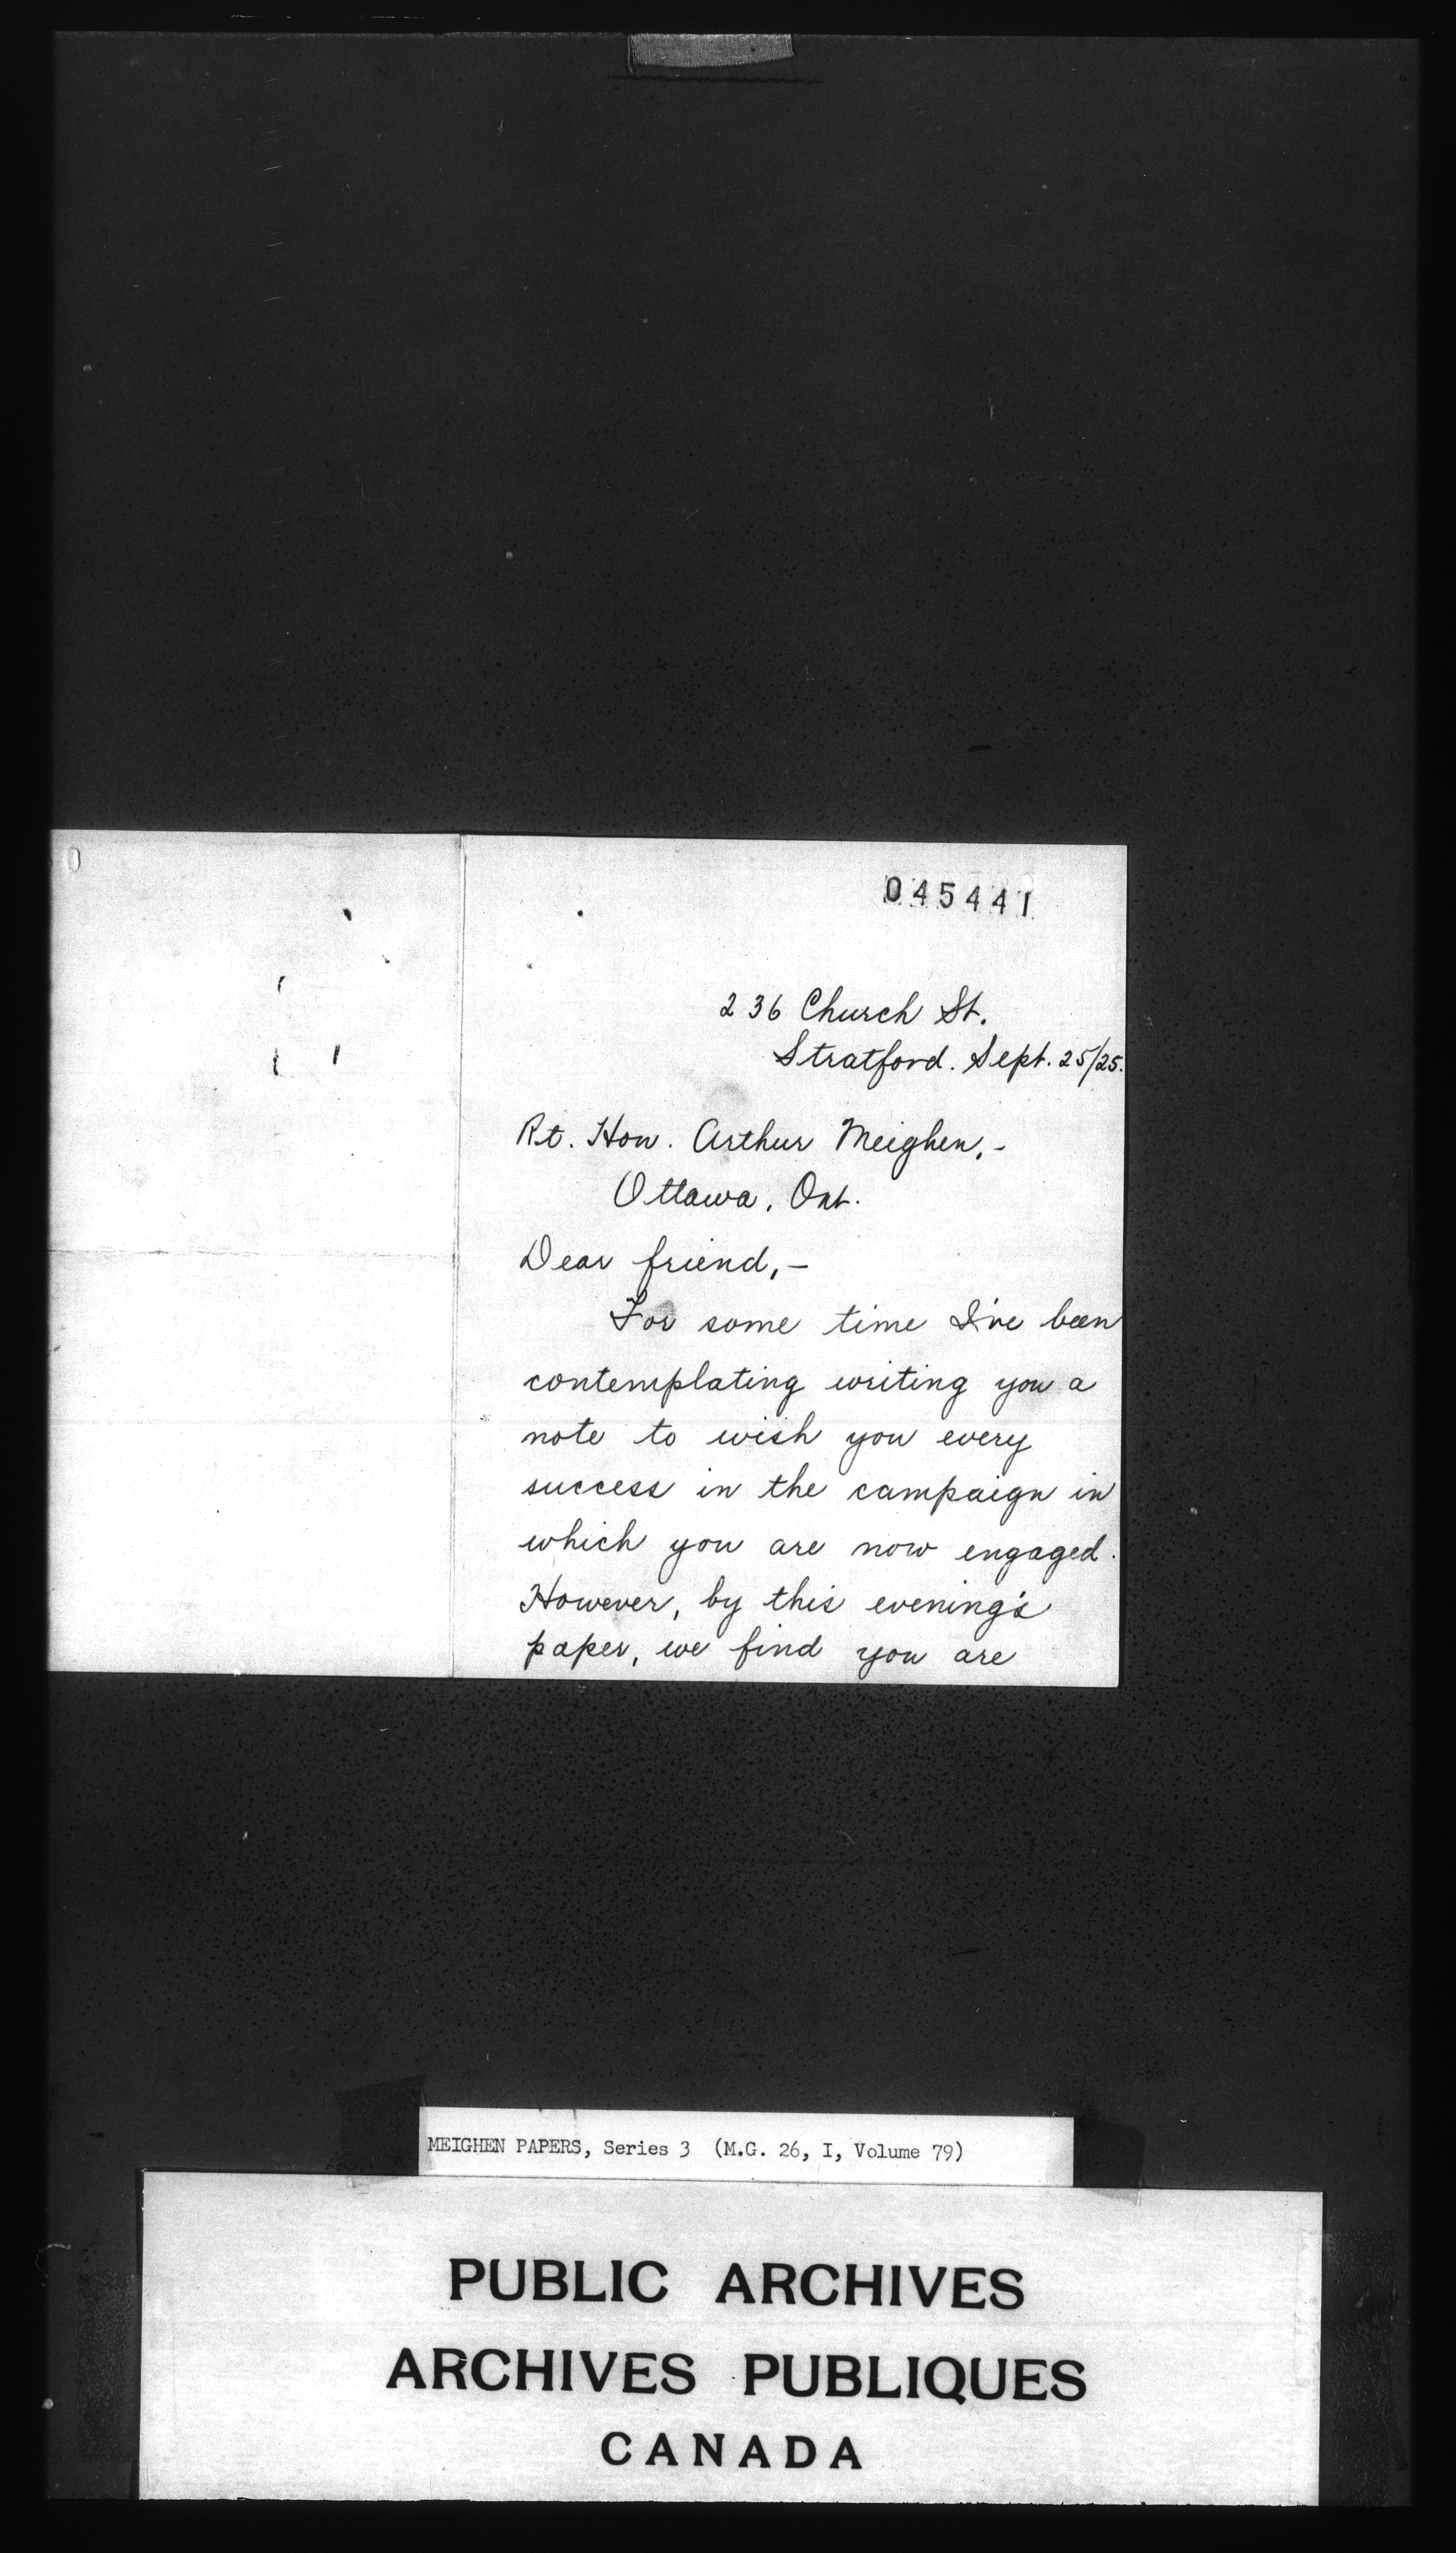 045441
236 Church St.
Stratford. Sept. 25/25.
Rt. Hon. Arthur Meighen,-
Ottawa, Ont.
Dear friend,-
For some time I've been
contemplating writing you a
note to wish you every
success in the campaign in
which you are now engaged.
However, by this evening's
paper, we find you are
MEIGHEN PAPERS, Series 3 (M.G. 26, I, Volume 79)
PUBLIC ARCHIVES
ARCHIVES PUBLIQUES
CANADA